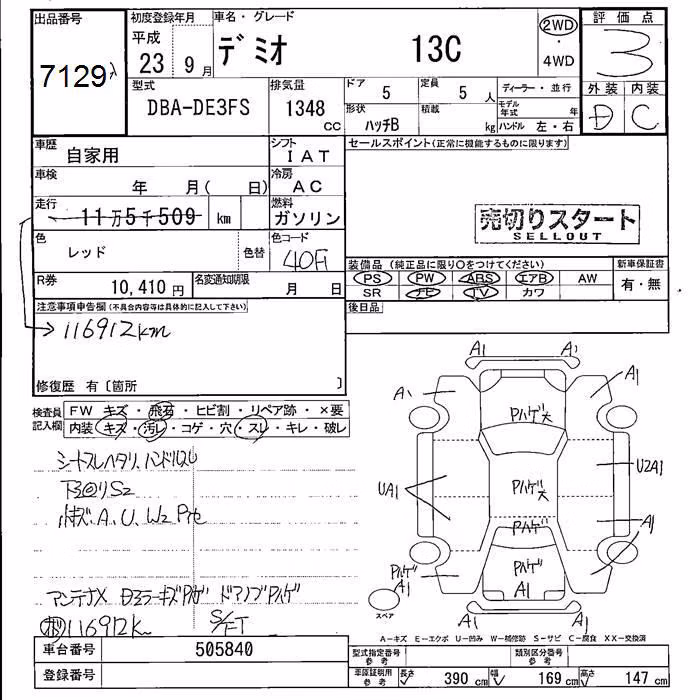 出品番号
7129
初度登録年月
平成
23 9 月
車名・グレード
デミオ 13C
2WD
・
4WD
評価点
3
外装 内装
D C
型式
DBA-DE3FS
排気量
1348
CC
ドア
5
定員
5 人
形状
ハッチB
積載
kg
ディーラー・並行
モデル
年式 年
ハンドル 左・右
車歴
自家用
シフト
IAT
車検
年 月( 日)
冷房
AC
走行
11万5千509 km
燃料
ガソリン
色
レッド
色替
色コード
40F
R券
10,410 円
名変通知期限
月 日
セールスポイント(正常に機能するものに限ります)
売切りスタート
SELLOUT
装備品(純正品に限り○をつけてください)
PS PW ABS エアB AW
SR ナビ TV カワ
新車保証書
有・無
後日品
注意事項申告欄(不具合内容等は具体的に記入して下さい)
→116912km
修復歴 有〔箇所 〕
検査員
記入欄
FW キズ・飛石・ヒビ割・リペア跡・×要
内装・キズ・汚レ・コゲ・穴・スレ・キレ・破レ
シートスレヘタリ、ハンドルスレ
下回りS2
小キズ、A、U、W2
アンテナX ドアノブPハゲ
116912k
A1 A1
A1
Pハゲ大
UA1
Pハゲ大
U2A1
Pハゲ
A1
Pハゲ
A1
Pハゲ
A1
スペア
W W
A-キズ E-エクボ U-凹み W-補修跡 S-サビ C-腐食 XX-交換済
車台番号
505840
登録番号
型式指定番号
参考
類別区分番号
参考
車庫証明用
参考
長さ
390 cm
幅
169 cm
高さ
147 cm